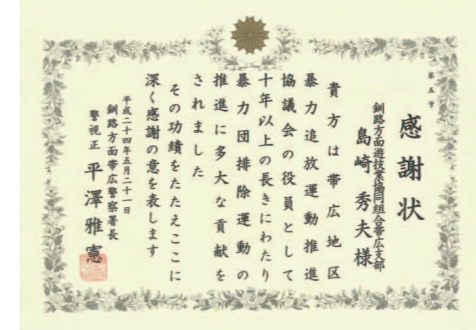 第五号
感謝状
釧路方面遊技業協同組合帯広支部
島崎秀夫様
貴方は帯広地区
暴力追放運動推進
協議会の役員として
十年以上の長きにわたり
暴力団排除運動の
推進に多大な貢献を
されました
その功績をたたえここに
深く感謝の意を表します
平成二十四年五月二十一日
釧路方面帯広警察署長
警視正 平澤雅憲